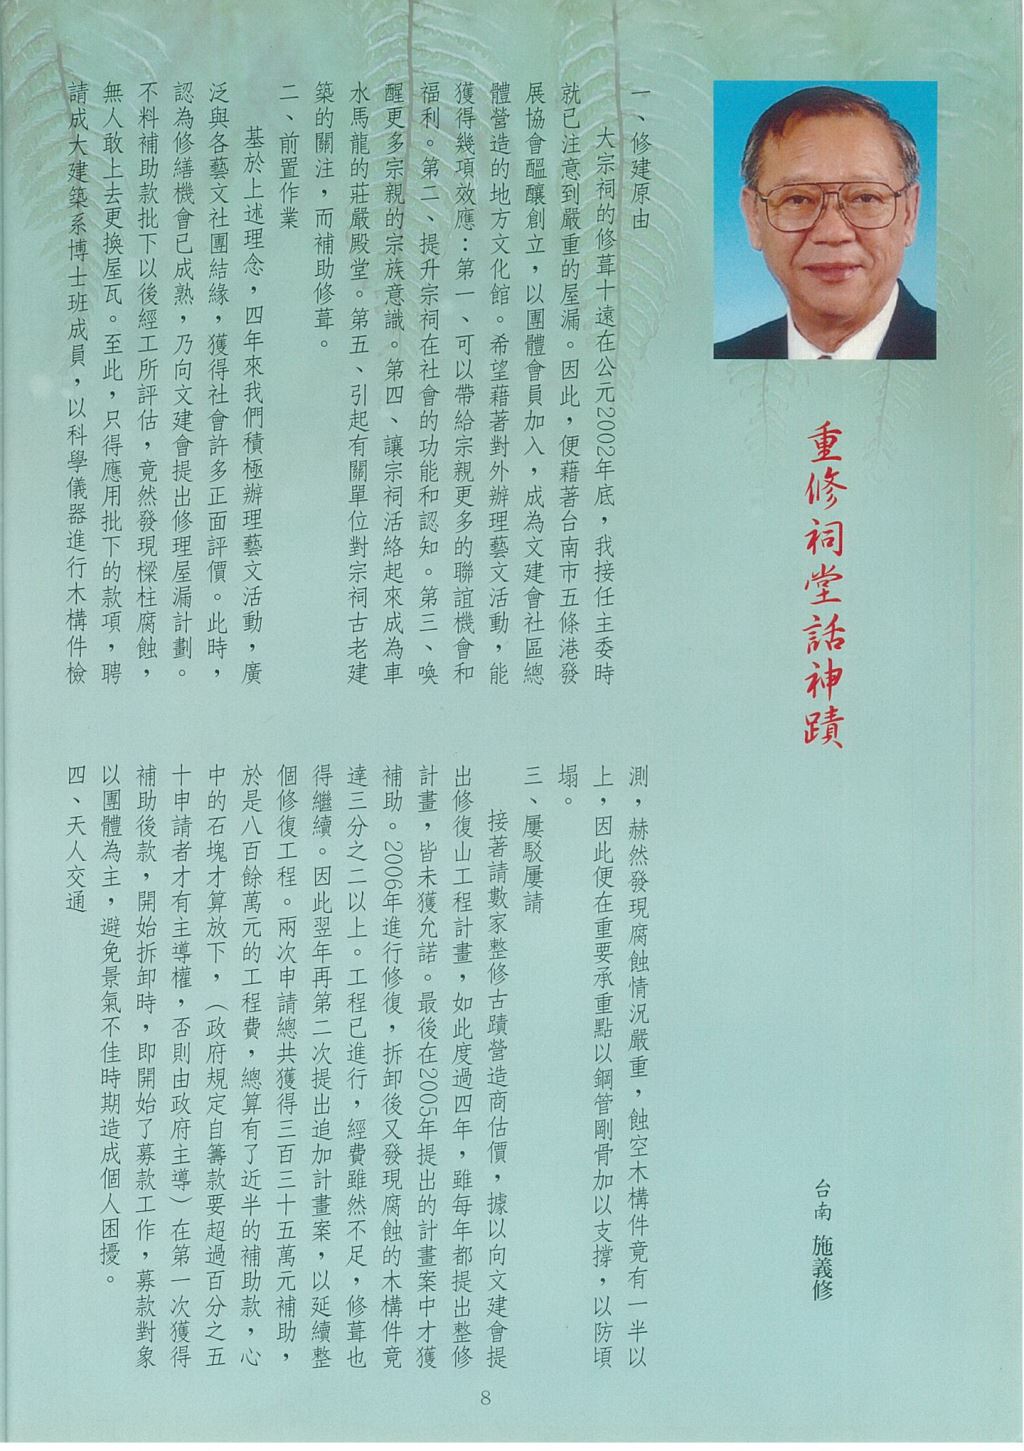 重修祠堂話神蹟
台南 施義修
一、修建原由
大宗祠的修葺十遠在公元2002年底，我接任主委時
就已注意到嚴重的屋漏。因此，便藉著台南市五條港發
展協會醞釀創立，以團體會員加入，成為文建會社區總
體營造的地方文化館。希望藉著對外辦理藝文活動，能
獲得幾項效應：第一、可以帶給宗親更多的聯誼機會和
福利。第二、提升宗祠在社會的功能和認知。第三、喚
醒更多宗親的宗族意識。第四、讓宗祠活絡起來成為車
水馬龍的莊嚴殿堂。第五、引起有關單位對宗祠古老建
築的關注，而補助修葺。
二、前置作業
基於上述理念，四年來我們積極辦理藝文活動，廣
泛與各藝文社團結緣，獲得社會許多正面評價。此時，
認為修繕機會已成熟，乃向文建會提出修理屋漏計劃。
不料補助款批下以後經工所評估，竟然發現樑柱腐蝕，
無人敢上去更換屋瓦。至此，只得應用批下的款項，聘
請成大建築系博士班成員，以科學儀器進行木構件檢
測，赫然發現腐蝕情況嚴重，蝕空木構件竟有一半以
上，因此便在重要承重點以鋼管剛骨加以支撐，以防頃
塌。
三、屢駁屢請
接著請數家整修古蹟營造商估價，據以向文建會提
出修復山工程計畫，如此度過四年，雖每年都提出整修
計畫，皆未獲允諾。最後在2005年提出的計畫案中才獲
補助。2006年進行修復，拆卸後又發現腐蝕的木構件竟
達三分之二以上。工程已進行，經費雖然不足，修葺也
得繼續。因此翌年再第二次提出追加計畫案，以延續整
個修復工程。兩次申請總共獲得三百三十五萬元補助，
於是八百餘萬元的工程費，總算有了近半的補助款，心
中的石塊才算放下，（政府規定自籌款要超過百分之五
十申請者才有主導權，否則由政府主導）在第一次獲得
補助後款，開始拆卸時，即開始了募款工作，募款對象
以團體為主，避免景氣不佳時期造成個人困擾。
四、天人交通
8